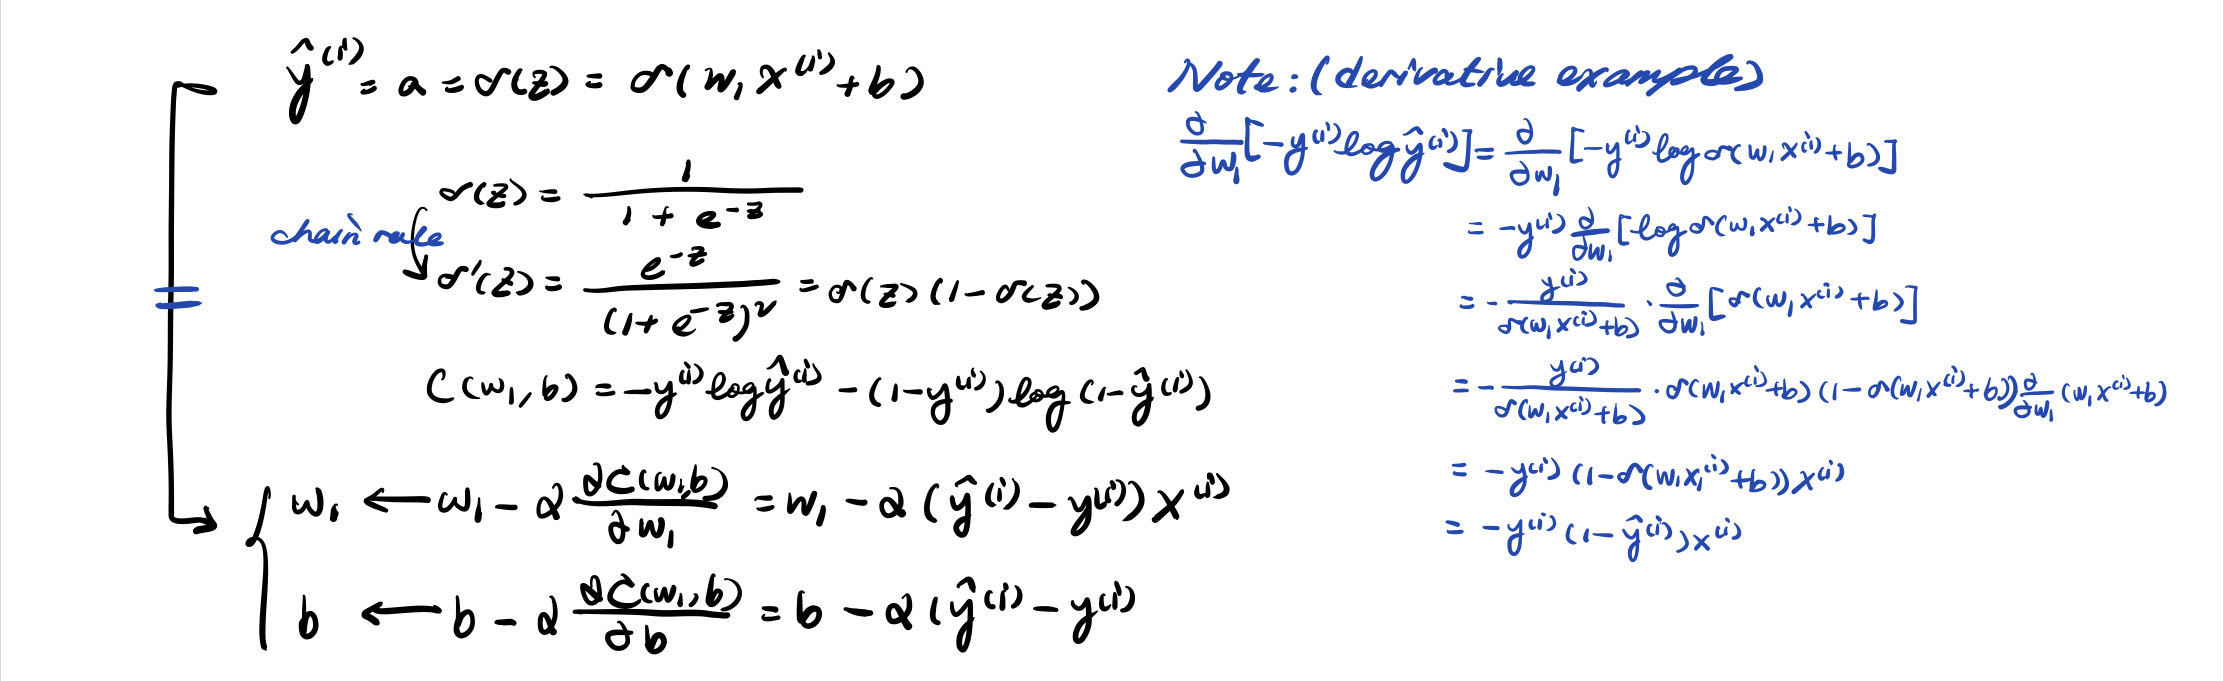 ŷ⁽ⁱ⁾ = a = σ(z) = σ(w₁ x⁽ⁱ⁾ + b)
σ(z) = 1 / (1 + e^{-z})
chain rule
σ'(z) = e^{-z} / (1 + e^{-z})² = σ(z)(1 - σ(z))
C(w₁, b) = -y⁽ⁱ⁾ log ŷ⁽ⁱ⁾ - (1 - y⁽ⁱ⁾) log (1 - ŷ⁽ⁱ⁾)
w₁ ← w₁ - α ∂C(w₁,b)/∂w₁ = w₁ - α (ŷ⁽ⁱ⁾ - y⁽ⁱ⁾) x⁽ⁱ⁾
b ← b - α ∂C(w₁,b)/∂b = b - α (ŷ⁽ⁱ⁾ - y⁽ⁱ⁾
Note: (derivative example)
∂/∂w₁ [-y⁽ⁱ⁾ log ŷ⁽ⁱ⁾] = ∂/∂w₁ [-y⁽ⁱ⁾ log σ(w₁ x⁽ⁱ⁾ + b)]
= -y⁽ⁱ⁾ ∂/∂w₁ [log σ(w₁ x⁽ⁱ⁾ + b)]
= - y⁽ⁱ⁾ / σ(w₁ x⁽ⁱ⁾ + b) · ∂/∂w₁ [σ(w₁ x⁽ⁱ⁾ + b)]
= - y⁽ⁱ⁾ / σ(w₁ x⁽ⁱ⁾ + b) · σ(w₁ x⁽ⁱ⁾ + b) (1 - σ(w₁ x⁽ⁱ⁾ + b)) ∂/∂w₁ (w₁ x⁽ⁱ⁾ + b)
= -y⁽ⁱ⁾ (1 - σ(w₁ x₁⁽ⁱ⁾ + b)) x⁽ⁱ⁾
= -y⁽ⁱ⁾ (1 - ŷ⁽ⁱ⁾) x⁽ⁱ⁾